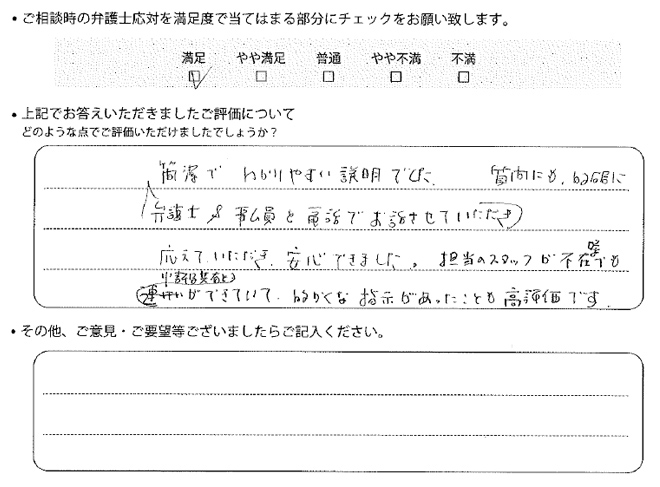 • ご相談時の弁護士応対を満足度で当てはまる部分にチェックをお願い致します。
満足 やや満足 普通 やや不満 不満
• 上記でお答えいただきましたご評価について
どのような点でご評価いただけましたでしょうか？
簡潔で わかりやすい説明でした. 質問にも、的確に
弁護士 事務員と電話でお話させていただき
応えていただき、安心できました。担当のスタッフが不在時でも
情報共有と
連携ができていて、的確な指示があったことも高評価です.
• その他、ご意見・ご要望等ございましたらご記入ください。